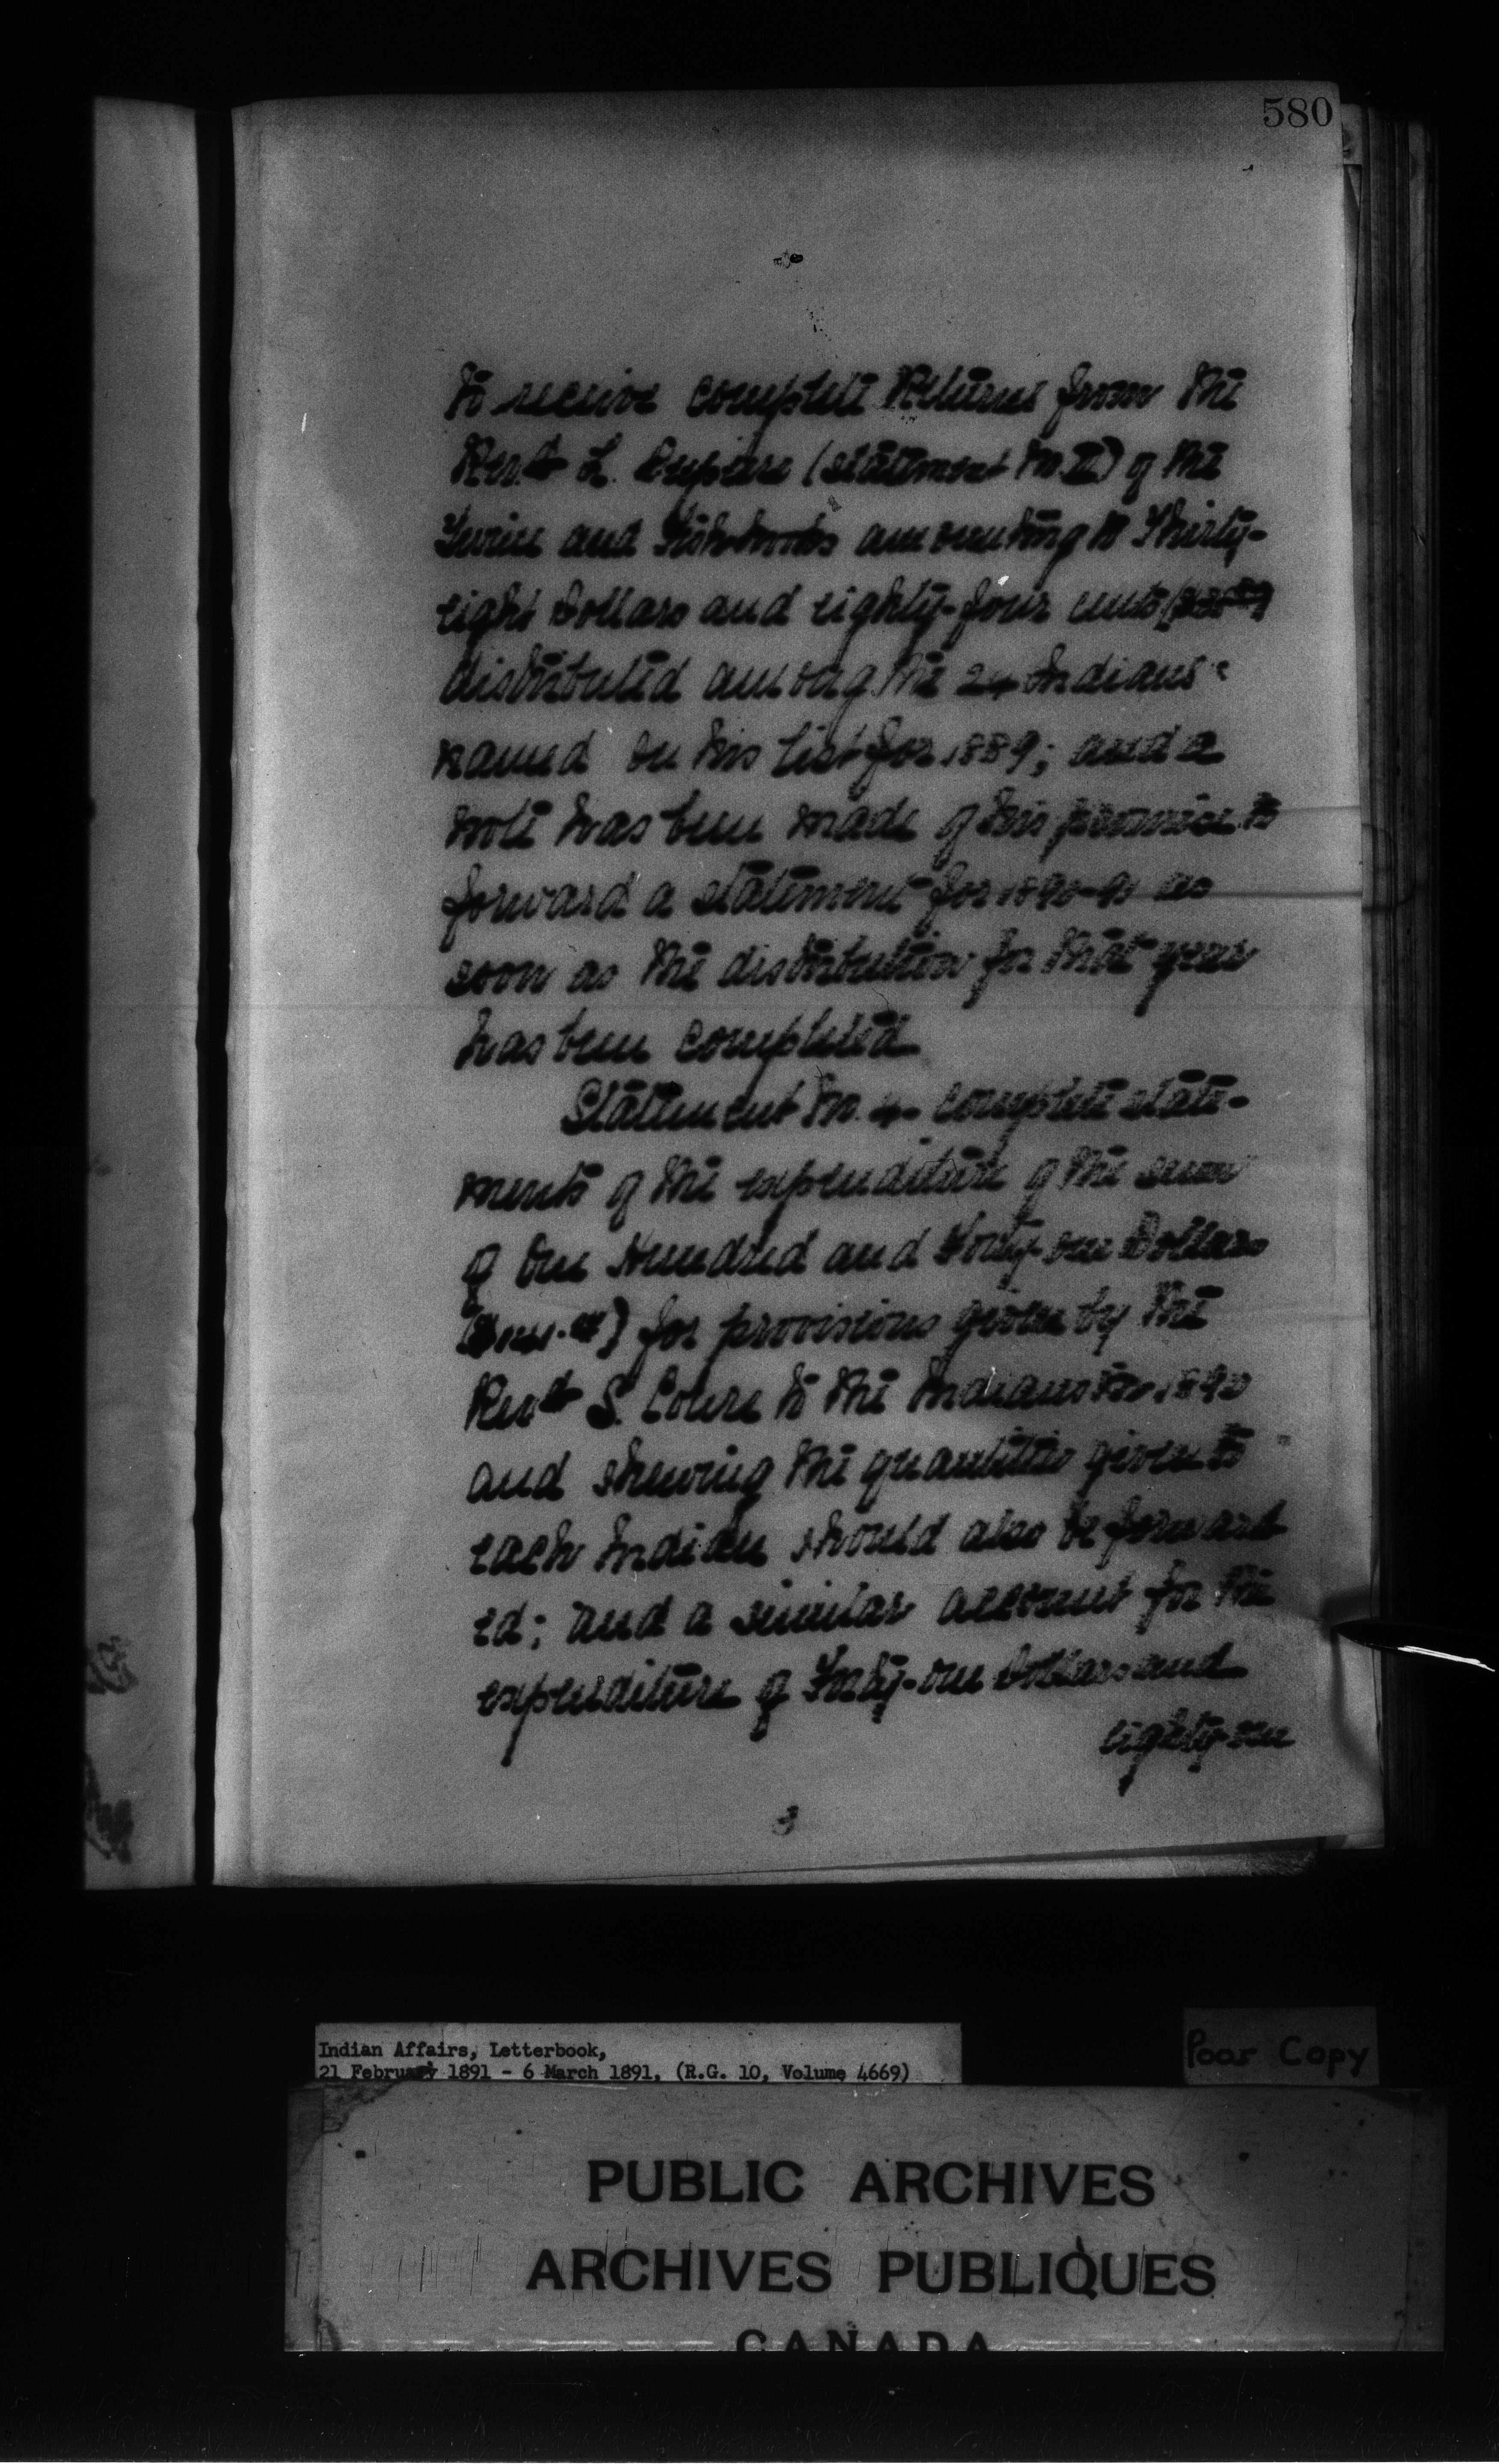 580
to receive complete Returns from the
Revd L. Dupire (statement No. II) of the
Twine and Fishhooks amounting to Thirty-
eight Dollars and eighty-four cents
distributed among the 24 Indians
named on his list for 1889; and a
note has been made of his promise to
forward a statement for 1890-91 as
soon as the distribution for that year
has been completed
Statement No. 4. complete state-
ments of the expenditure of the sum
of One Hundred and Forty-one Dollars
for provisions given by the
Revd S. to the Indians for 1890
and shewing the quantities given to
each Indian should also be forward
ed; and a similar account for the
expenditure of Forty-one Dollars and
eighty-one
3
Indian Affairs, Letterbook,
21 February 1891 - 6 March 1891, (R.G. 10, Volume 4669)
Poor Copy
PUBLIC ARCHIVES
ARCHIVES PUBLIQUES
CANADA